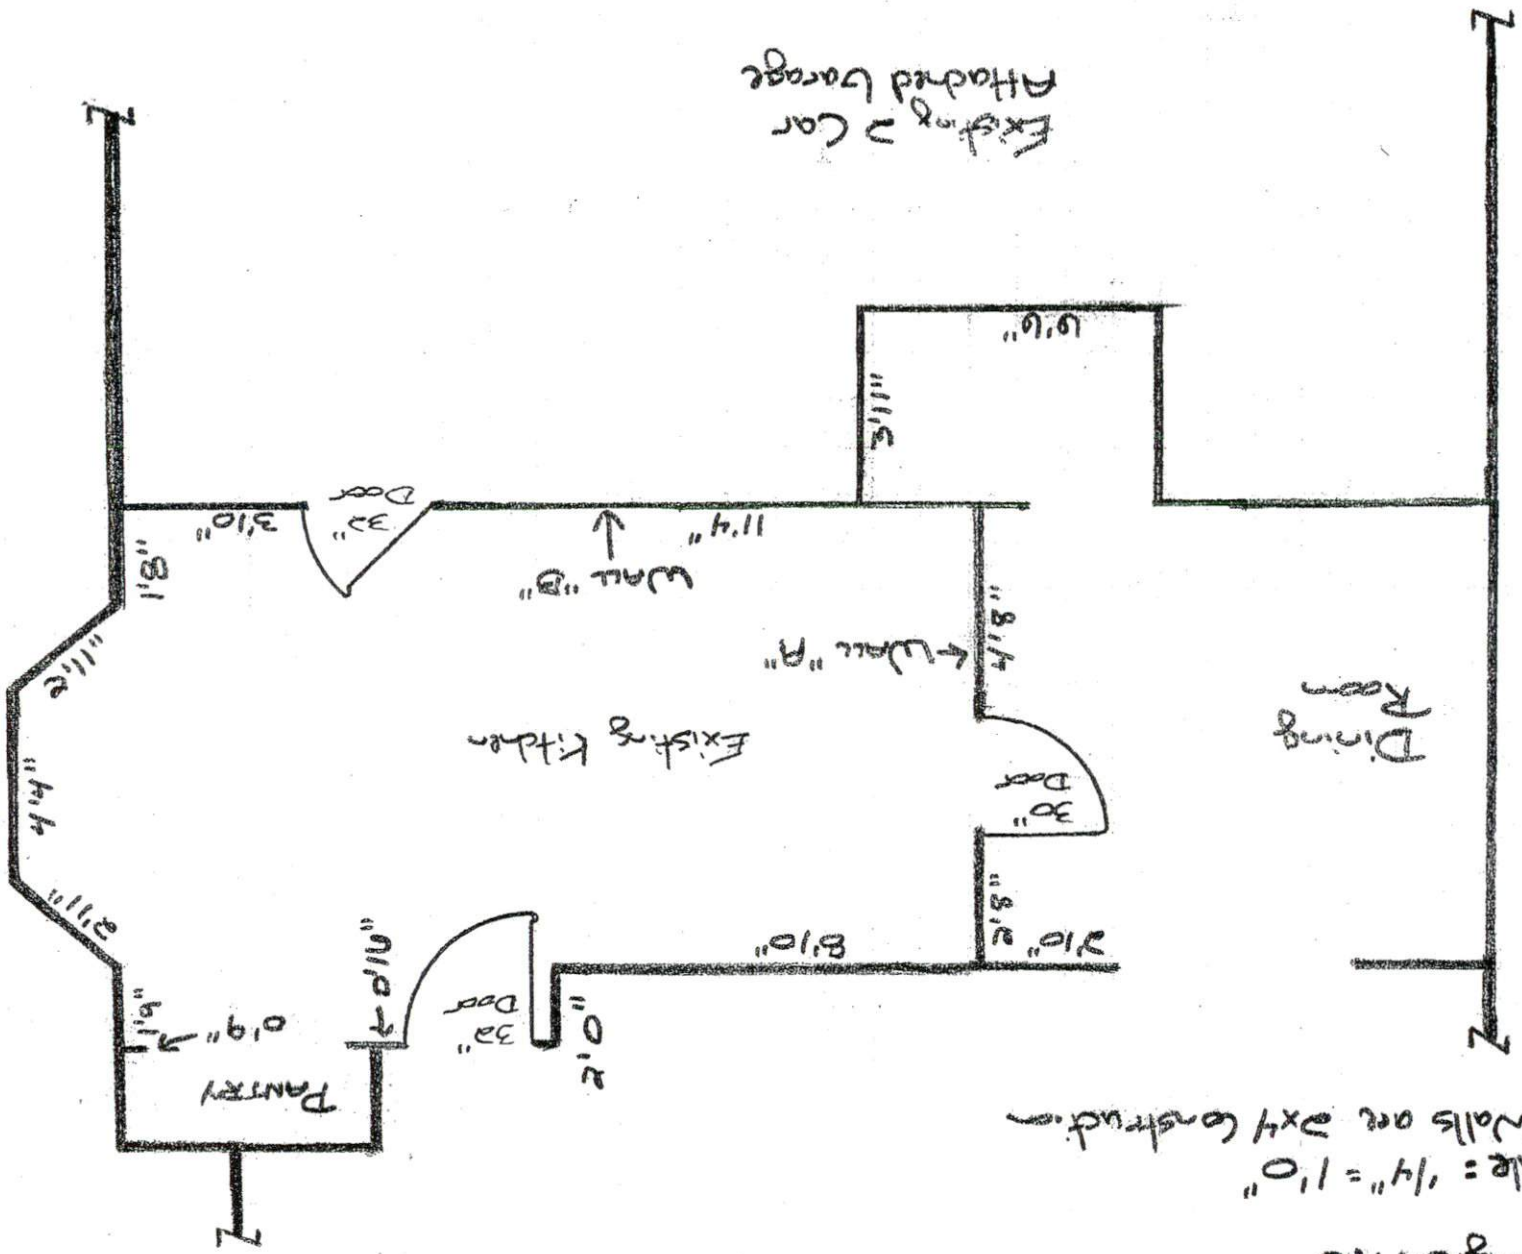 le: 1/4" = 1'0"
Walls are 2x4 Construction
PANTRY
0'6"
1'6"
0'11"
2'0"
32"
Door
2'10"
8'10"
2'8"
2'11"
30"
Door
Dining
Room
Existing Kitchen
4'4"
Wall "A"
4'8"
Wall "B"
2'11"
1'8"
11'4"
32"
Door
3'10"
3'11"
6'6"
Existing 2 Car
Attached Garage